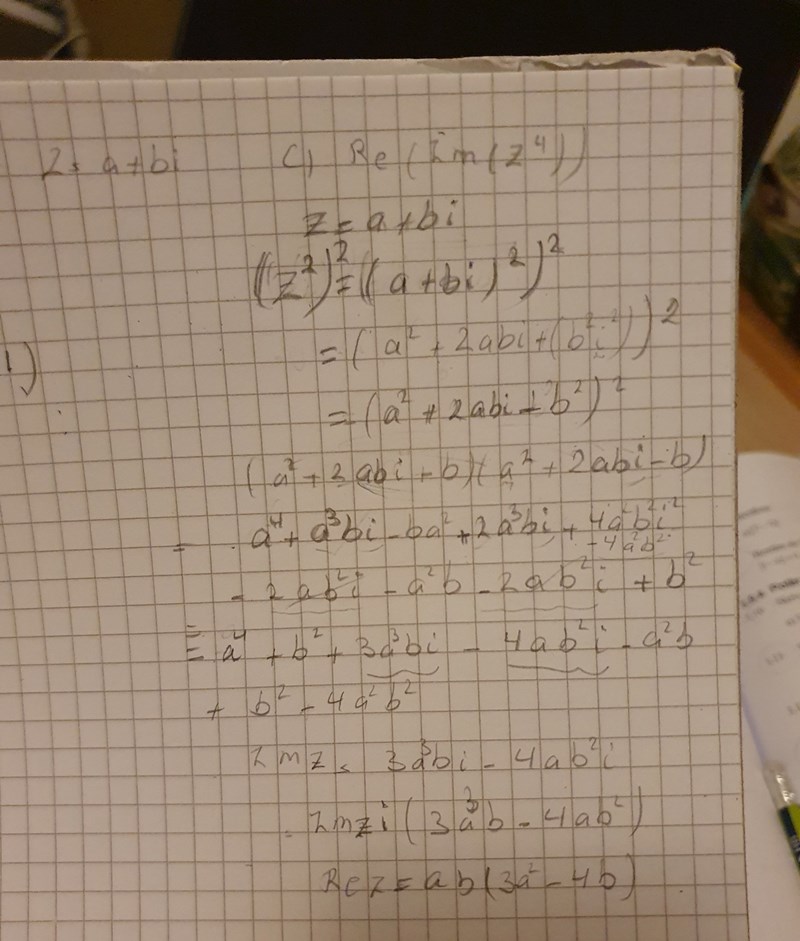 z = a+bi c) Re(Im(z⁴))
z = a+bi
((z²)² = ((a+bi)²)²
1) = (a² + 2abi + (b²i²))²
= (a² + 2abi - b²)²
(a² + 2abi - b)(a² + 2abi - b)
= a⁴ + a³bi - ba² + 2a³bi + 4a²b²i²
- 4a²b²
- 2ab²i - a²b - 2ab²i + b²
= a⁴ + b² + 3a³bi - 4ab²i - a²b
+ b² - 4a²b²
Imz = 3a³bi - 4ab²i
Imz i(3a³b - 4ab²)
Re z = ab(3a² - 4b)